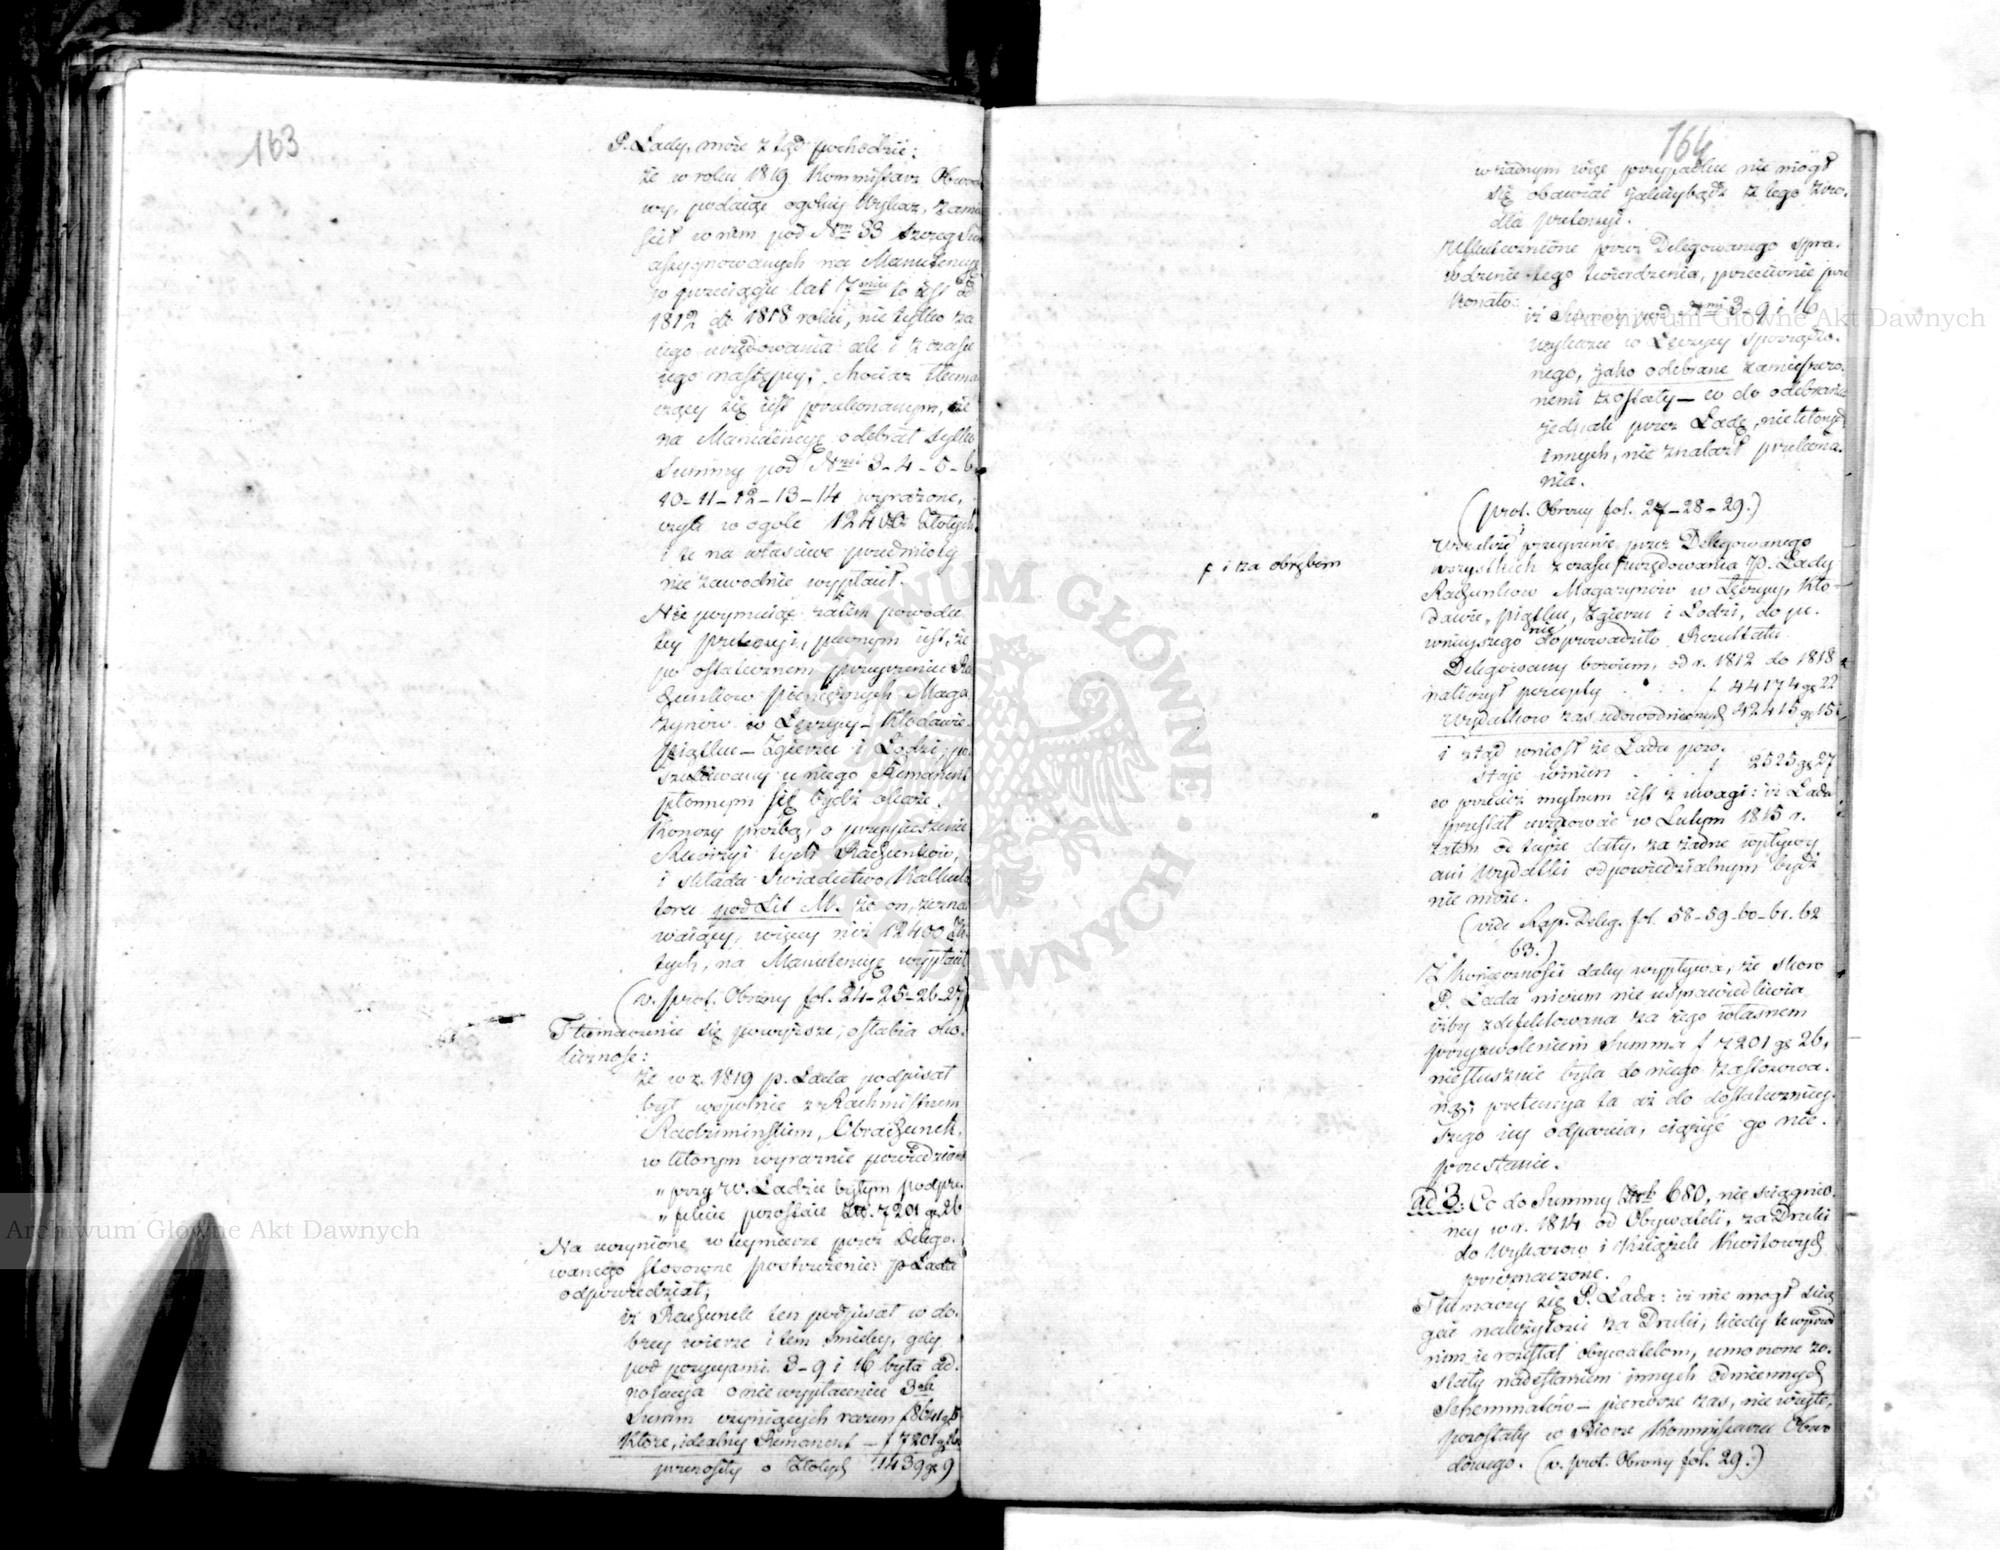 163
P. Łady, może z tąd pochodzić:
że w roku 1819 Kommissarz Obwodo
wy, podaiąc ogólny Wykaz, zamie
ścił w nem pod Nrm 33 szereg Summ
assygnowanych na Manutencyę
w przeciągu lat 7miu to iest od
1812 do 1818 roku, nie tylko za
iego urzędowania ale i z czasu
iego następcy; chociaż tłuma
czący się iest przekonanym, że
na Manutencyę odebrał tylko
Summy pod Nrmi 3-4-5-6-
10-11-12-13-14 wyrażone,
czyli w ogóle 12400 Złotych
i te na właściwe przedmioty
niezawodnie wypłacił.
Nie poymuiąc zatem powodu
tey pretensyi, pewnym iest, że
po ostatecznem przeyrzeniu Ra
chunków pieniężnych Maga
zynów w Łęczycy - Kłodawie -
Piątku - Zgierzu i Łodzi, po
szukiwany u niego Remanent
płonnym się bydź okaże.
Kończy prośbą, o przyspieszenie
Rewizyi tych Rachunków,
i składa Świadectwo Kalkula
tora pod Lit. M. że on, zezna
waiący, więcey niż 12400 Zło
tych, na Manutencyę wypłacił
(v. prot. Obrony fol. 24-25-26-27)
Tłumaczenie się powyższe, osłabia oko
liczność:
że w r. 1819 p. Łada podpisał
był wspólnie z Rachmistrzem
Radzimińskim, Obrachunek,
w którym wyraźnie powiedziano
„ przy W. Ładzie byłym podpre
„ fekcie pozostaie Zł. 7201 gr 26
Na uczynione w tey mierze przez Delego
wanego stosowne postrzeżenie: p. Łada
odpowiedział;
iż Rachunek ten podpisał w do
brey wierze i tem śmieley, gdy
pod pozycyami 3-9 i 16 była ad
notacya o nie wypłaceniu 3ch
Summ czyniących razem f 8641 g 5
które, idealny Remanent - f 7201 g 26
przenosiły o Złotych 1439 gr 9
164
w żadnym więc przypadku nie mógł
się obawiać jakieybądź z tego źró
dła pretensyi.
Uskutecznione przez Delegowanego spra
wdzenie tego twierdzenia, przeciwnie prze
konało:
iż Summy pod Nrmi 3-9 i 16
wykazu w Łęczycy sporządzo
nego, jako odebrane zamieszczo
nemi zostały - co do odebrania
jednak przez Ładę, nie których
innych, nie znalazł przekona
nia.
(prot. Obrony fol. 27-28-29.)
Wszelkie przeyrzenie przez Delegowanego
wszystkich z czasu f urzędowania JP. Łady
f i za obrębem
Rachunków Magazynów w Łęczycy, Kło
dawie, Piątku, Zgierzu i Łodzi, do pe
wnieyszego nie doprowadziło Rezultatu.
Delegowany bowiem, od r. 1812 do 1818
naliczył percepty . . . f 44174 gr 22
Wydatków zaś udowodnionych 42415 gr 15
i ztąd wniósł że Łada pozo
staje winien . . . f 2525 gr 27
co przecież mylnem iest z uwagi: iż Łada
przestał urzędować w Lutym 1815 r.
zatem od teyże daty, za żadne wpływy
ani Wydatki odpowiedzialnym bydź
nie może.
(vide Rap. Deleg. fol. 58-59-60-61-62
63.)
Z konieczności daley wypływa, że skoro
P. Łada niczem nie usprawiedliwia
iżby zdefektowana za iego własnem
przyzwoleniem Summa f 7201 gr 26,
niesłusznie była do niego zastosowa
ną; pretensya ta aż do dostateczniey
szego iey odparcia, ciążyć go nie
przestanie.
ad 3. Co do Summy 680, nie ściągnio
ney w r. 1814 od Obywateli, za Druki
do Wykazów i Książek Kwitowych
przeznaczone.
Tłumaczy się P. Łada: iż nie mógł ścią
gać należytości za Druki, kiedy te wprzód
nim je rozesłał obywatelom, umorzone zo
stały nadesłaniem innych odmiennych
Schemmatów - pierwsze zaś, nie użyte,
pozostały w Biórze Kommissarza Obwo
dowego. (v. prot. Obrony fol. 29.)
Archiwum Główne Akt Dawnych
Archiwum Główne Akt Dawnych
ARCHIWUM GŁÓWNE AKT DAWNYCH